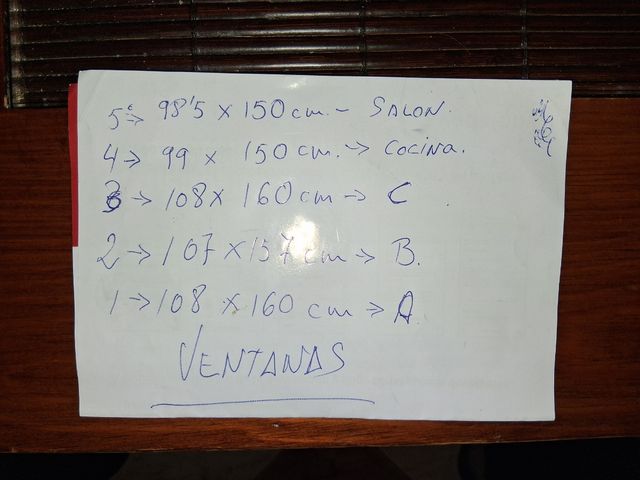 5ª→ 98'5 x 150 cm. - SALON.
4 → 99 x 150 cm. → COCINA.
3 → 108 x 160 cm → C
2 → 107 x 157 cm → B.
1 → 108 x 160 cm → A
VENTANAS